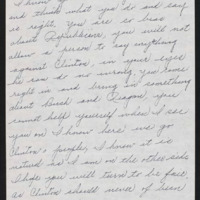 I know
and think what you do and say
is right. You are so bias
about Republicans, you will not
allow a person to say anything
against Clinton, in your eyes
he can do no wrong, you
right in and bring in something
about Bush and Reagan, you
cannot help yourself when I see
you on I know here we go
Clinton's people, I know it is
natural as I am on the other side
I hope you will learn to be fair,
as Clinton should never of been